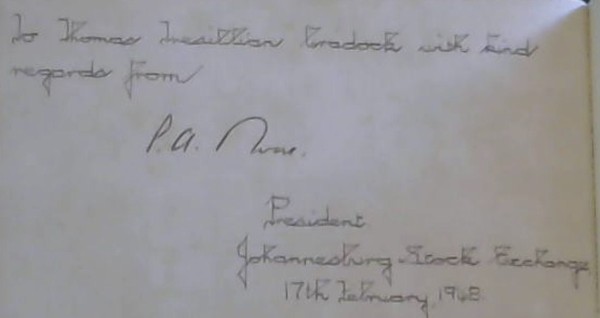 To Thomas Tresillian Cradock with kind
regards from
P. A.
President
Johannesburg Stock Exchange
17th February, 1948